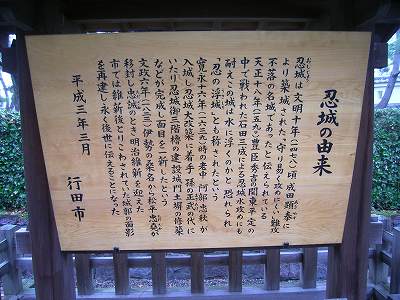 忍城の由来
忍城は文明十年(一四七八)頃 成田顕泰に
より築城された 守り易く攻めにくい難攻
不落の名城であったと伝えられてる
天正十八年(一五九〇)豊臣秀吉の関東平定の
中で戦われた石田三成による忍城水攻めにも
耐えこの城は水に浮くのかと恐れられ
「忍の浮城」とも称されたという
寛永十六年(一六三九)時の老中 阿部忠秋が
入城し忍城大改築に着手 孫の正武の代に
いたり忍城御三階櫓の建設 城門土塀の修築
などが完成し面目を一新したという
文政六年(一八二三)伊勢の桑名から松平忠堯が
移封し忠誠のとき明治維新を迎えた
市では維新後とりこわされていた城郭の面影
を再建し永く後世に伝えることになった
平成三年三月
行田市